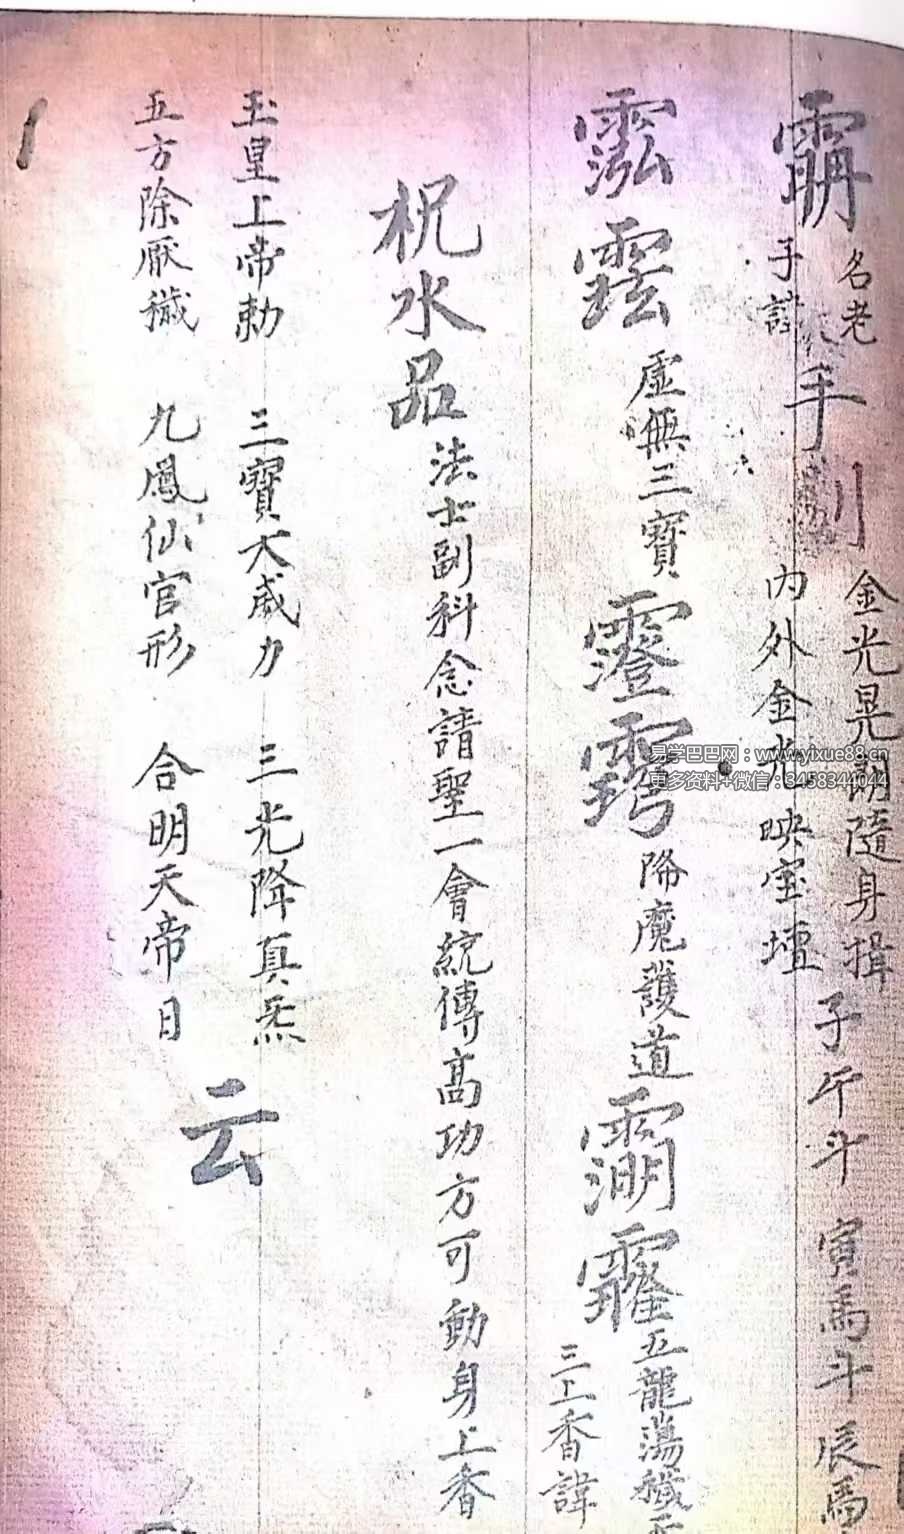 名老
子諱
手
金光晃朗隨身揖
內外金光映宝壇
子午斗 寅馬斗 辰馬
虛無三寶
降魔護道
五龍蕩穢
三上香諱
祝水品 法士副科念請聖一會統傳高功方可動身上香
玉皇上帝勅 三寶大威力 三光降真炁
五方除厭穢 九鳳仙官形 合明天帝日
云
易学巴巴网：www.yixue88.cn
更多资料+微信：3458344044